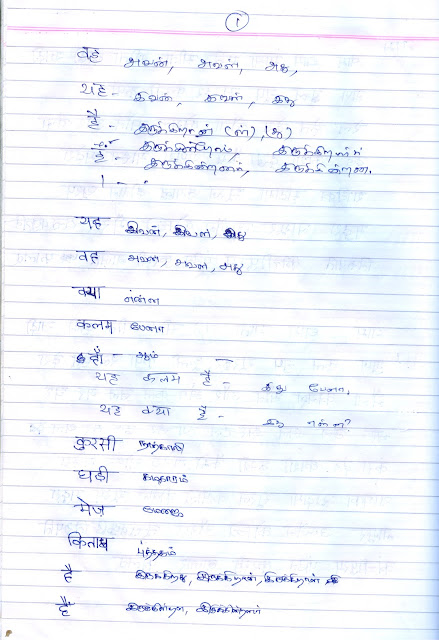 1
वह அவன், அவள், அது,
यह - இவன், இவள், இது
है - இருக்கிறான் (ள்), (து)
हैं - இருக்கின்றன.
1 - .
यह இவன், இவள், இது
वह அவன், அவள், அது
क्या என்ன
कलम பேனா
हाँ - ஆம்
यह कलम है - இது பேனா.
यह क्या है - இது என்ன?
कुरसी நாற்காலி
घड़ी கடிகாரம்
मेज़ மேஜை
किताब புத்தகம்
है இருக்கிறது, இருக்கிறாள், இருக்கிறான்
हैं இருக்கின்றன, இருக்கின்றனர்